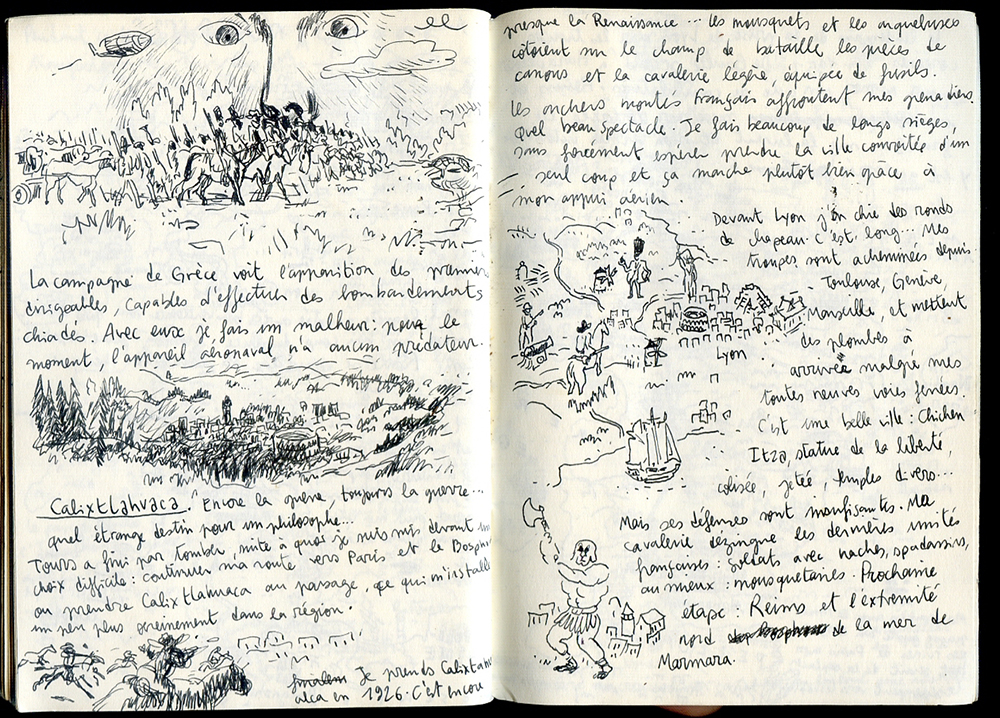 La campagne de Grèce voit l'apparition des premiers
dirigeables, capables d'effectuer des bombardements
chiadés. Avec eux je fais un malheur : pour le
moment, l'appareil aéronaval n'a aucun prédateur.
Calixtlahuaca. Encore la guerre, toujours la guerre...
quel étrange destin pour un philosophe...
Tours a fini par tomber, suite à quoi je suis mis devant un
choix difficile : continuer ma route vers Paris et le Bosphore
ou prendre Calixtlahuaca au passage, ce qui m'installe
un peu plus pereinement dans la région.
Je prends Calixtlahu
alca en 1926. C'est encou
presque la Renaissance... les mousquets et les arquebuses
côtoient sur le champ de bataille les pièces de
canons et la cavalerie légère, équipée de fusils.
Les archers montés français affrontent mes grenadiers.
Quel beau spectacle. Je fais beaucoup de longs sièges,
sans forcément espérer prendre la ville convoitée d'un
seul coup et ça marche plutôt bien grâce à
mon appui aérien.
Devant Lyon j'en chie des ronds
de chapeau. C'est long... Mes
troupes sont acheminées depuis
Toulouse, Genève,
Marseille, et mettent
des plombes à
arriver malgré mes
toutes neuves voies ferrées.
C'est une belle ville : Chichen
Itza, statue de la liberté,
colisée, jetée, temples divers...
Lyon
Mais ses défenses sont insuffisantes. Ma
cavalerie dézingue les dernières unités
françaises : soldats avec haches, spadassins,
au mieux : mousquetaires. Prochaine
étape : Reims et l'extrémité
nord de la mer de
Marmara.